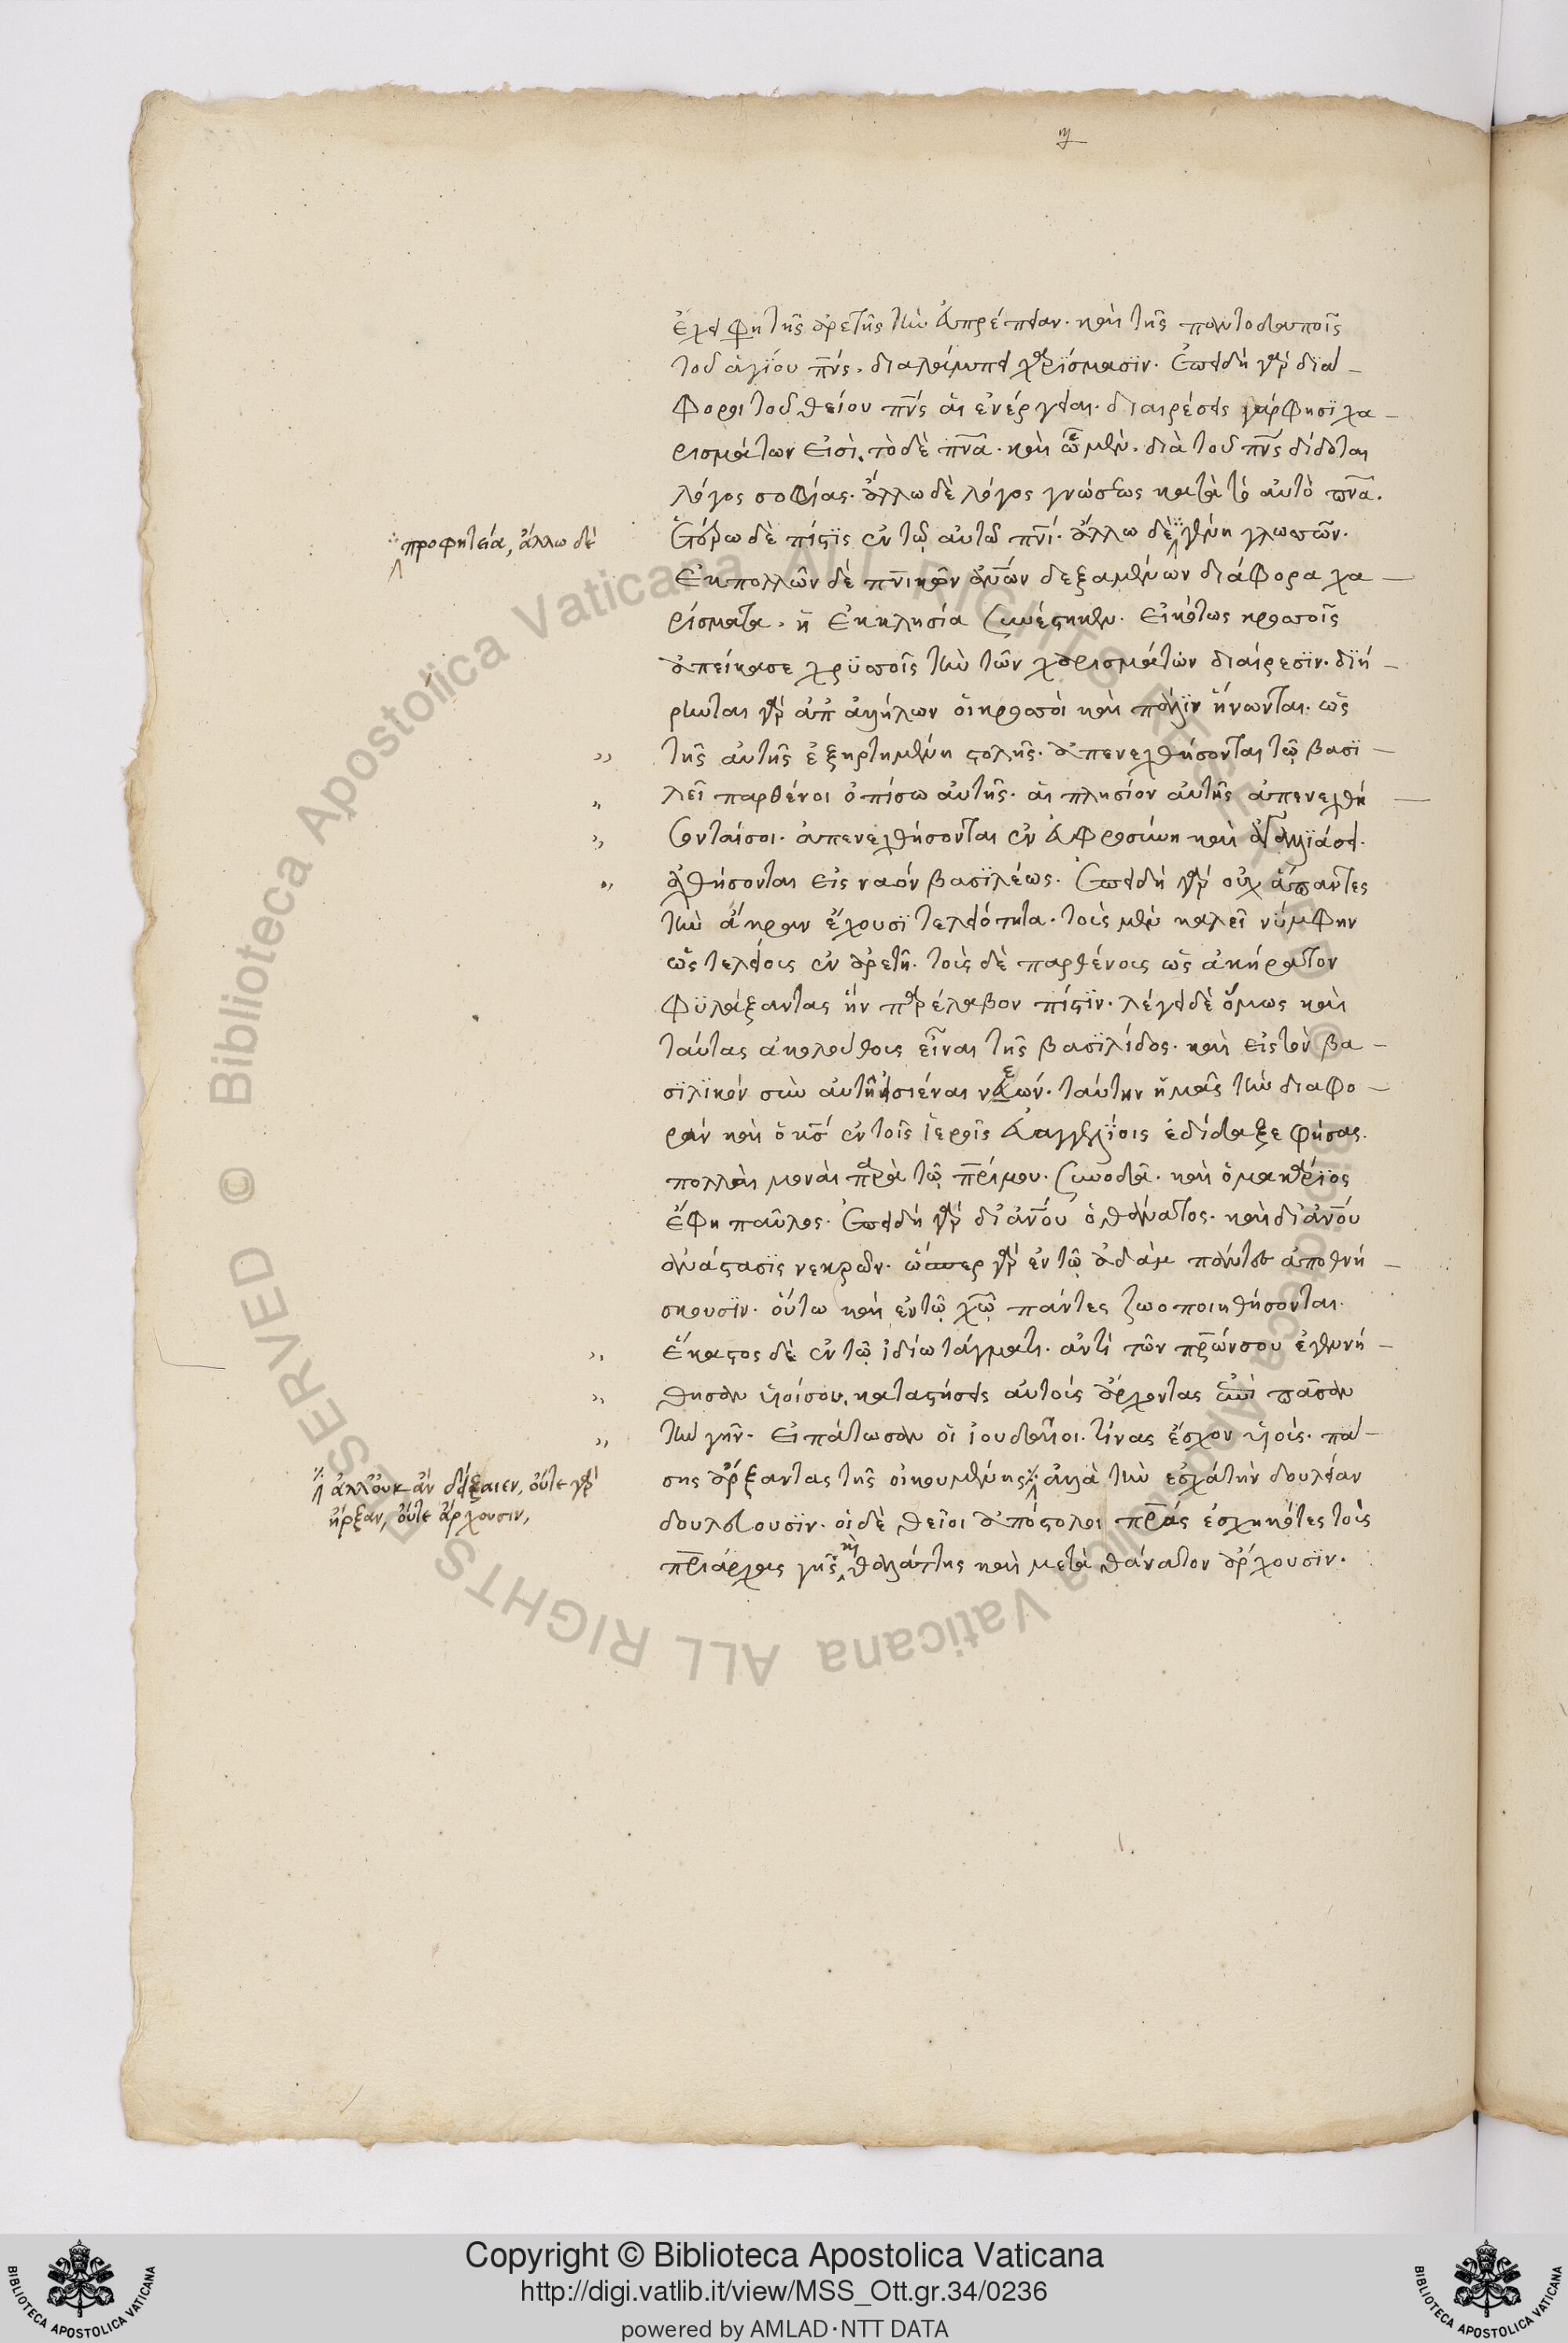 ἔχει φη τῆς ἀρετῆς τὴν εὐπρέπειαν. καὶ τῆς παντοδαποῖς
τοῦ ἁγίου πν̅ς. διαλάμπει χαρίσμασϊν. ἐπειδὴ γὰρ διά-
φοροι τοῦ θείου πν̅ς αἱ ἐνέργειαι. διαιρέσεις γάρ φησὶ χα-
ρισμάτων εἰσὶ. τὸ δὲ πν̅α. καὶ ᾧ μὲν. διὰ τοῦ πν̅ς δίδοται
λόγος σοφίας. ἄλλω δὲ λόγος γνώσεως κατὰ τὸ αὐτὸ πν̅α.
ἑτέρω δὲ πίστϊς ἐν τῷ αὐτῶ πν̅ι. ἄλλω δὲ γένη γλωσσῶν.
προφητεία, ἄλλω δὲ
ἐκ πολλῶν δὲ πν̅ικῶν ἀν̅ων δεξαμένων διάφορα χα-
ρίσματα. ἡ ἐκκλησία συνέστηκεν. εἰκότως κροσσοῖς
ἀπείκασε χρϋσοῖς τὴν τῶν χαρισμάτων διαίρεσϊν. διή-
ρηνται γὰρ ἀπ ἀλλήλων οἱ κροσσοὶ καὶ πάλϊν ἥνωνται. ὡς
τῆς αὐτῆς ἐξηρτημένη στολῆς. ἀπενεχθήσονται τῷ βασϊ-
λεῖ παρθένοι ὀπίσω αὐτῆς. αἱ πλησίον αὐτῆς ἀπενεχθή-
σονταί σοι. ἀπενεχθήσονται ἐν εὐφροσύνη καὶ ἀγαλλϊάσει.
ἀχθήσονται εἰς ναὸν βασϊλέως. ἐπειδὴ γὰρ οὐχ ἅπαντες
τὴν ἄκραν ἔχουσϊ τελειότητα. τοὺς μὲν καλεῖ νύμφην
ὡς τελείους ἐν ἀρετῆ. τοὺς δὲ παρθένους ὡς ἀκήρατον
φϋλάξαντας ἣν παρέλαβον πίστϊν. λέγει δὲ ὅμως καὶ
ταύτας ἀκολούθους εἶναι τῆς βασϊλίδος. καὶ εἰς τὸν βα-
σϊλϊκὸν σὺν αὐτῆ εἰσιέναι νεών. ταύτην ἡμᾶς τὴν διαφο-
ρὰν καὶ ὁ κς̅ ἐν τοῖς ἱεροῖς εὐαγγελϊοις ἐδίδαξε φήσας.
πολλαὶ μοναὶ παρὰ τῷ πρ̅ι μου. συνωδὰ. καὶ ὁ μακάρϊος
ἔφη παῦλος. ἐπειδὴ γὰρ δι ἀν̅ου ὁ θάνατος. καὶ δι ἀν̅ου
ἀνάστασϊς νεκρῶν. ὥσπερ γὰρ ἐν τῷ ἀδὰμ πάντες ἀποθνή-
σκουσϊν. οὕτω καὶ ἐν τῷ χω̅ πάντες ζωοποιηθήσονται.
ἕκαστος δὲ ἐν τῷ ἰδίω τάγματι. ἀντὶ τῶν πρ̅ων σου ἐγενή-
θησαν υἱοί σου. καταστήσεις αὐτοὺς ἄρχοντας ἐπὶ πᾶσαν
τὴν γῆν. εἰπάτωσαν οἱ ἰουδαῖοι. τίνας ἔσχον υἱοὺς. πά-
σης ἄρξαντας τῆς οἰκουμένης. ἀλλὰ τὴν ἐσχάτην δουλείαν
ἀλλ οὐκ ἂν δείξαιεν, οὔτε γὰρ
ἦρξαν, οὔτε ἄρχουσιν,
δουλεύουσϊν. οἱ δὲ θεῖοι ἀπόστολοι πρ̅ας ἐσχηκότες τοὺς
πρ̅ιάρχας γῆς καὶ θαλάττης καὶ μετὰ θάνατον ἄρχουσϊν.
Copyright © Biblioteca Apostolica Vaticana
http://digi.vatlib.it/view/MSS_Ott.gr.34/0236
powered by AMLAD·NTT DATA
BIBLIOTECA APOSTOLICA VATICANA
BIBLIOTECA APOSTOLICA VATICANA
Biblioteca Apostolica Vaticana ALL RIGHTS RESERVED © Biblioteca Apostolica Vaticana ALL RIGHTS RESERVED ©